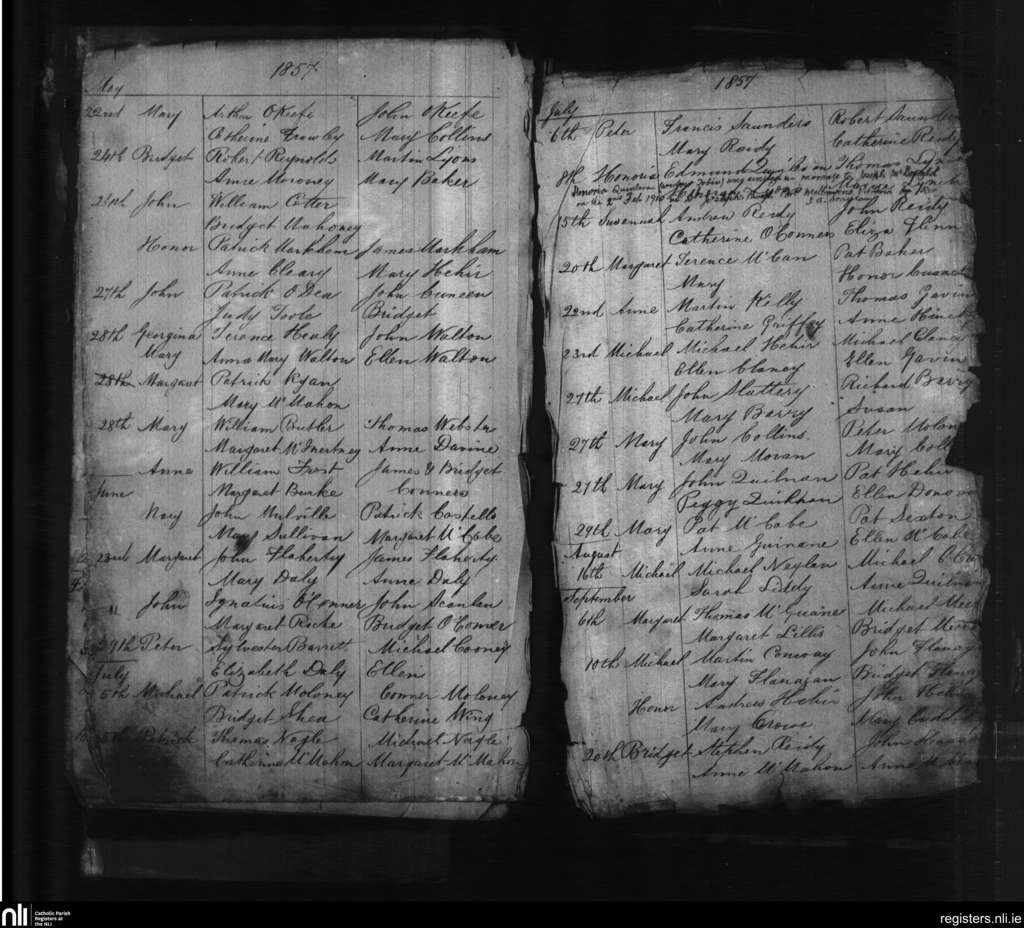 1857
May
22nd Mary Arthur O'Keefe John O'Keefe
Catherine Frawley Mary Collins
24th Bridget Robert Reynolds Martin Lyons
Anne Moroney Mary Baker
24th John William Cotter
Bridget Mahoney
Honor Patrick Markham James Markham
Anne Cleary Mary Hehir
27th John Patrick O'Dea John Cuneen
Judy Toole Bridget
28th Georgina Terence Healy John Walton
Mary Anna Mary Walton Ellen Walton
28th Margaret Patrick Ryan
Mary McMahon
28th Mary William Butler Thomas Webster
Margaret McInertney Anne Davine
Anne William Frost James & Bridget
June Margaret Burke Conners
Mary John Melville Patrick Costello
Mary Sullivan Margaret McCabe
23rd Margaret John Flaherty James Flaherty
Mary Daly Anne Daly
" John Ignatius O'Conner John Scanlan
Margaret Roche Bridget O'Conner
29th Peter Sylvester Barrett Michael Cooney
July Elizabeth Daly Ellen
5th Michael Patrick Moloney Conner Moloney
Bridget Shea Catherine Wing
5th Patrick Thomas Nagle Michael Nagle
Catherine McMahon Margaret McMahon
1857
July
6th Peter Francis Saunders Robert Saunders
Mary Reidy Catherine Reidy
8th Honoria Edmund Thomas
Honoria Quinlivan was married in marriage to Joseph
on the 2nd Feb 1910 Melbourne Victoria by Rev
15th Susannah Andrew Reidy John Reidy
Catherine O'Conners Eliza Flinn
20th Margaret Terence McCan Pat Baker
Mary Honor
22nd Anne Martin Kelly Thomas Gavin
Catherine Griffey Anne
23rd Michael Michael Hehir Michael
Ellen Clancy Ellen Gavin
27th Michael John Slattery Richard Barry
Mary Barry Susan
27th Mary John Collins Peter
Mary Moran Mary
27th Mary John Quilnan Pat Hehir
Peggy Ellen
29th Mary Pat McCabe Pat Sexton
August Anne Guinane Ellen McCabe
16th Michael Michael Neylan Michael
September Sarah Liddy Anne
6th Margaret Thomas McGuane Michael
Margaret Lillis Bridget
10th Michael Martin Conway John
Mary Flanagan Bridget
Honor Andrew Hehir John
Mary Crowe Mary
20th Bridget Stephen Reidy John
Anne McMahon Anne
nli
Catholic Parish
Registers at
the NLI
registers.nli.ie